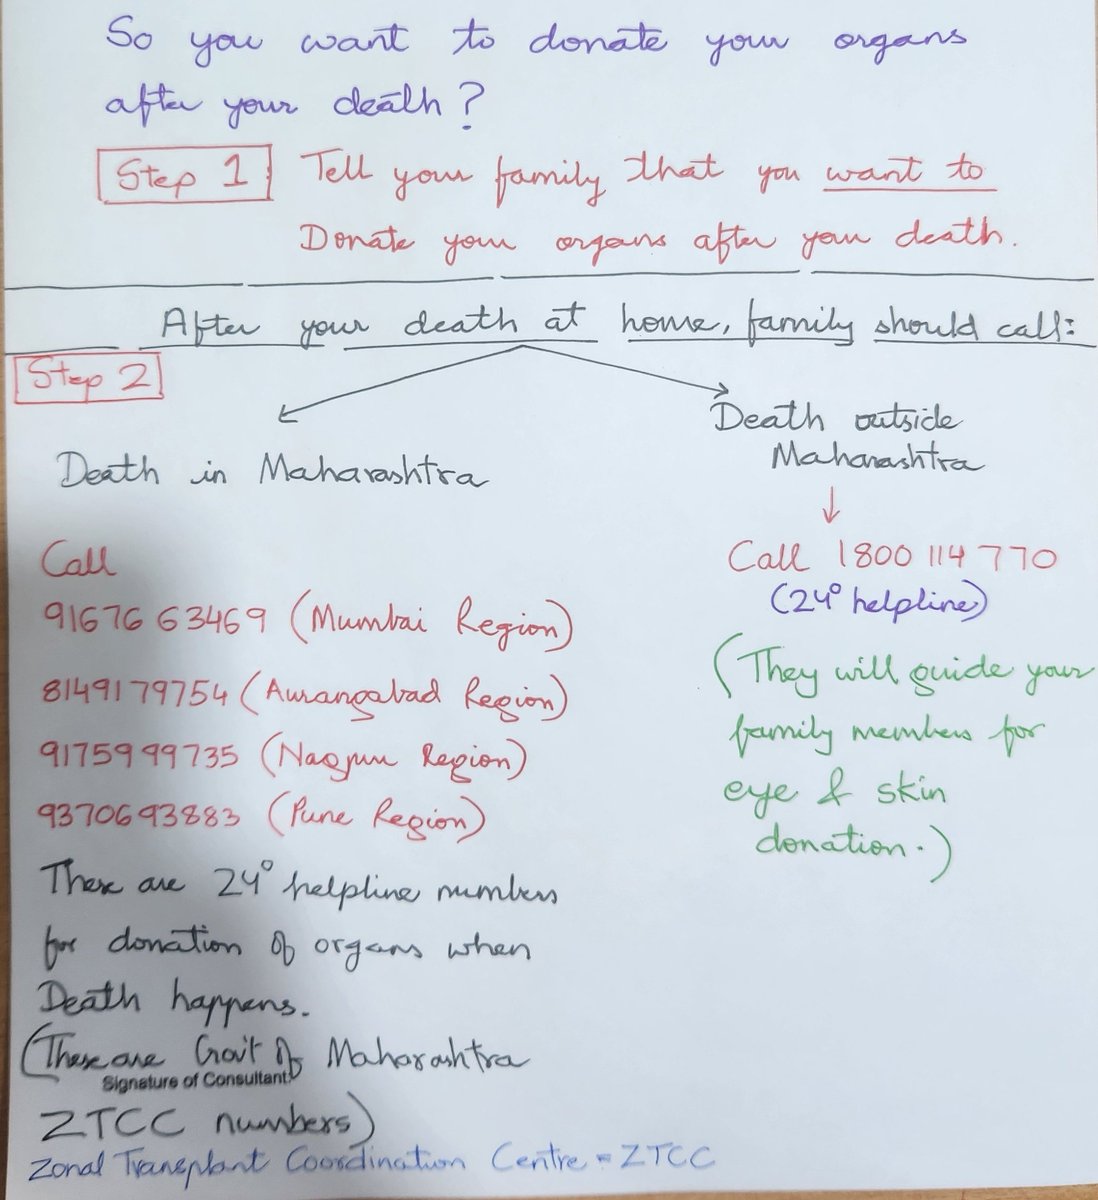 So you want to donate your organs
after your death?
Step 1 Tell your family that you want to
Donate your organs after your death.
After your death at home, family should call:
Step 2
Death in Maharashtra
Call
91676 63469 (Mumbai Region)
8149179754 (Aurangabad Region)
9175999735 (Nagpur Region)
9370693883 (Pune Region)
These are 24° helpline numbers
for donation of organs when
Death happens.
(These are Gov't of Maharashtra
Signature of Consultant
ZTCC numbers)
Zonal Transplant Coordination Centre = ZTCC
Death outside
Maharashtra
Call 1800 114 770
(24° helpline)
(They will guide your
family members for
eye & skin
donation.)